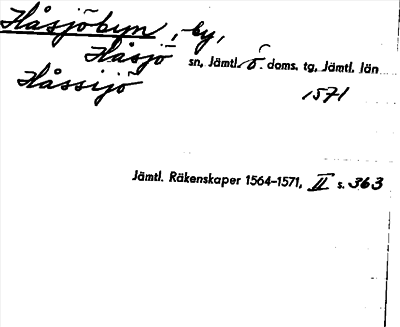 Håsjöbyn, by,
Håsjö sn, Jämtl. ö. doms. tg, Jämtl. län
Håssijö
1571
Jämtl. Räkenskaper 1564-1571, II s. 363